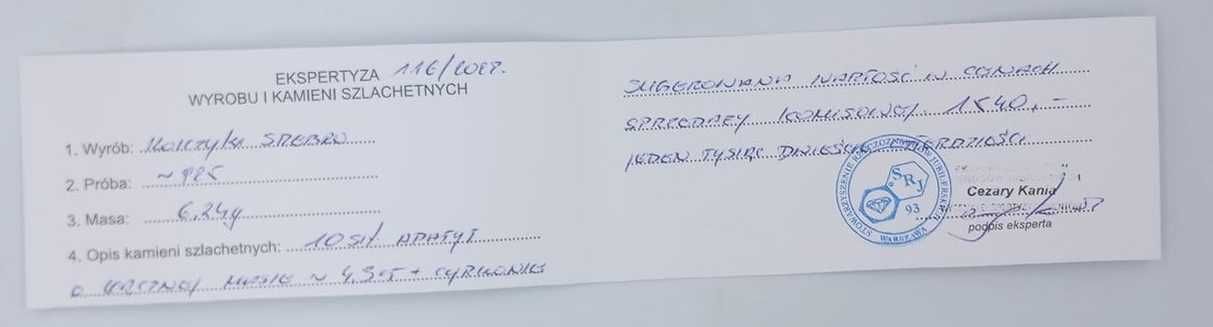 EKSPERTYZA
WYROBU I KAMIENI SZLACHETNYCH
1. Wyrób: Kolczyki SREBRO
2. Próba: ~ 925
3. Masa: 6,24g
4. Opis kamieni szlachetnych: 10szt APATYT
o łącznej masie ~ + CYRKONIE
SUGEROWANA WARTOŚĆ W CENACH
SPRZEDAŻY KOMISOWEJ
JEDEN TYSIĄC
STOWARZYSZENIE RZECZOZNAWCÓW JUBILERSKICH
SRJ
93
WARSZAWA
Cezary Kania
podpis eksperta